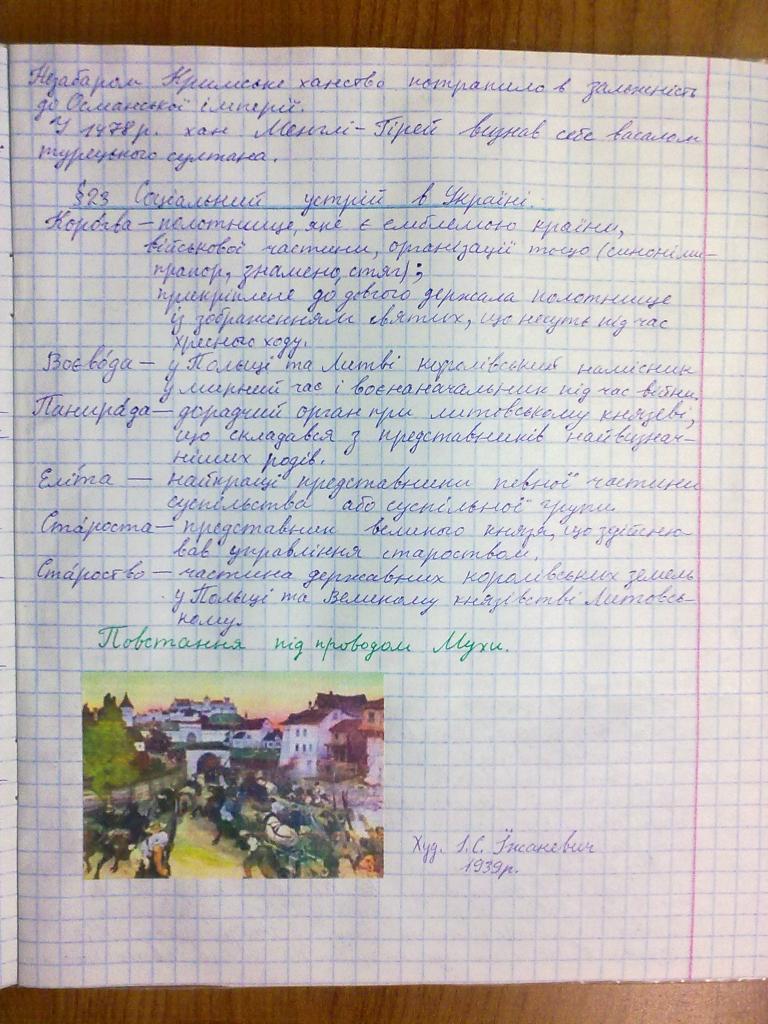 Незабаром Кримське ханство потрапило в залежність
до Османської імперії.
У 1478 р. хан Менглі-Гірей визнав себе васалом
турецького султана.
§23 Соціальний устрій в Україні.
Коро́гва – полотнище, яке є емблемою країни,
військової частини, організації тощо (синоніми-
прапор, знамено, стяг);
прикріплене до довгого держала полотнище
із зображенням святих, що несуть під час
хресного ходу.
Воєво́да – у Польщі та Литві королівський намісник
у мирний час і воєначальник під час війни.
Панира́да – дорадчий орган при литовському князеві,
що складався з представників найвизнач-
ніших родів.
Елі́та – найкращі представники певної частини
суспільства або суспільної групи.
Ста́роста – представник великого князя, що здійсню-
вав управління староством.
Ста́роство – частина державних королівських земель
у Польщі та Великому князівстві Литовсь-
кому.
Повстання під проводом Мухи.
Худ. І.С. Їжакевич
1939р.